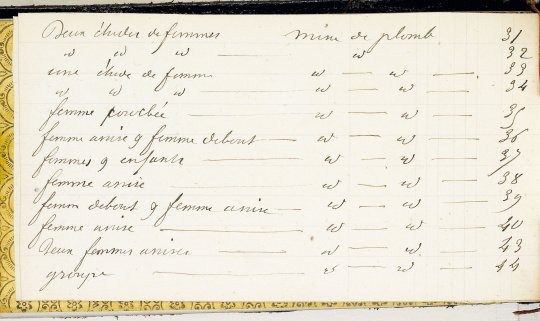 Deux études de femmes mine de plomb 31
" " " — " 32
une étude de femme " — " — 33
" " " — " — " — 34
femme couchée — " — " — 35
femme assise & femme debout — " — " — 36
femmes & enfants — " — " — 37
femme assise " — " — 38
femm debout & femme assise — " — " — 39
femme assise — " — " — 40
Deux femmes assises — " — " — 43
groupe — " — " — 44